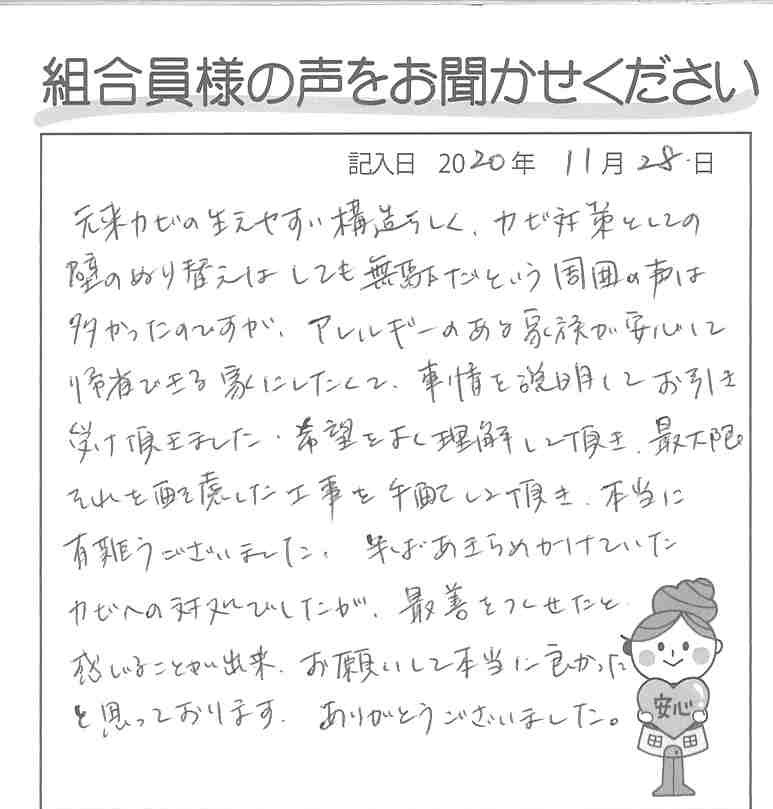 組合員様の声をお聞かせください
記入日 2020年 11月28日
元来カビの生えやすい構造らしく、カビ対策としての
壁のぬり替えはしても無駄だという周囲の声は
多かったのですが、アレルギーのある家族が安心して
帰省できる家にしたくて、事情を説明してお引き
受け頂きました。希望をよく理解して頂き、最大限
それを配慮した工事を手配して頂き、本当に
有難うございました。半ばあきらめかけていた
カビへの対処でしたが、最善をつくせたと
感じることが出来、お願いして本当に良かった
と思っております。ありがとうございました。
安心